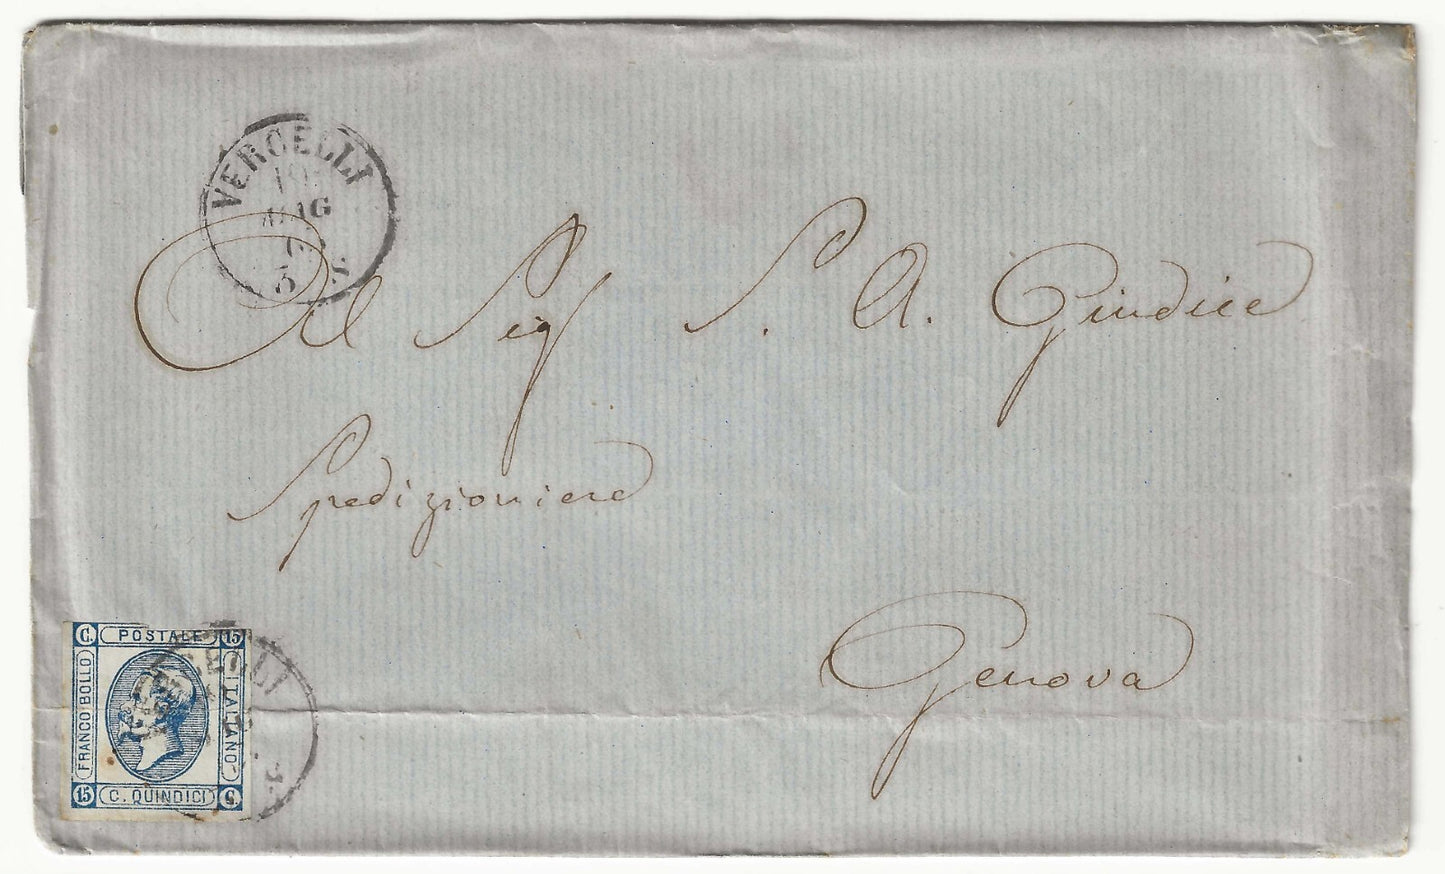 VERCELLI
MAG
5 S.
Al Sig S. A. Giudice
Spedizioniere
Genova
C. POSTALE 15
FRANCO BOLLO
ITALIANO
15 C. QUINDICI C.